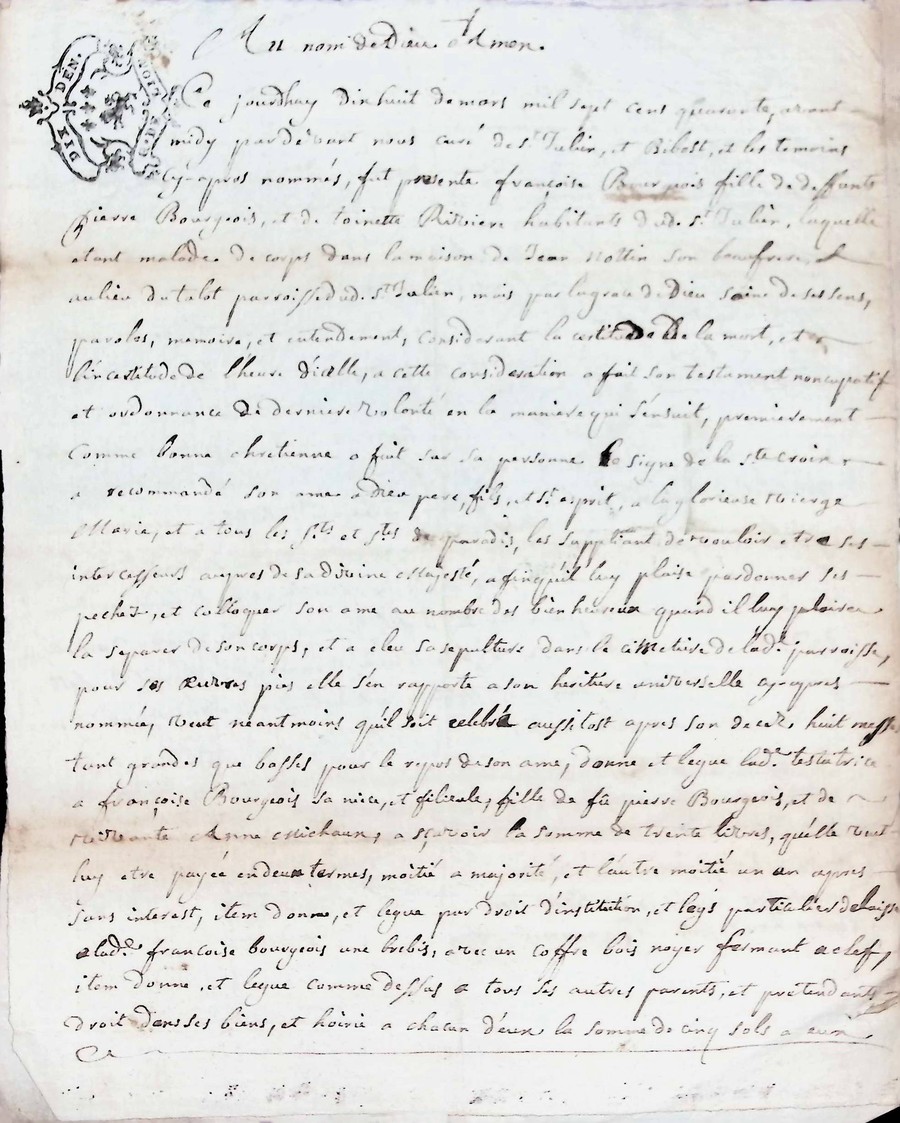 Au nom de Dieu Amen.
DIX DEN.
Ce jourdhuy dixhuit de mars mil sept cens quarante, avant
midy pardevant nous curé de st Julien, et Bibost, et les temoins
cy-apres nommés, fut presente françoise Bourgeois fille de deffunts
pierre Bourgeois, et de toinette Riviere habitants dud. st Julien, laquelle
etant malade de corps dans la maison de Jean Nottin son beaufrere,
au lieu du talot parroisse dud. st Julien, mais par la grace de Dieu saine de ses sens,
paroles, memoire, et entendement, considerant la certitude de la mort, et
l'incertitude de l'heure d'icelle, a cette consideration a fait son testament noncupatif
et ordonnance de derniere volonté en la maniere qui s'ensuit, premierement
comme bonne chretienne a fait sur sa personne le signe de la ste croix,
a recommandé son ame a dieu pere, fils, et st esprit, a la glorieuse vierge
Marie, et a tous les sts et stes de paradis, les suppliant de vouloir etre ses
intercesseurs aupres de sa divine Majesté, afin qu'il luy plaise pardonner ses
pechez, et colloquer son ame au nombre des bienheureux quand il luy plaira
la separer de son corps, et a eleu sa sepulture dans le cimetiere de lad. parroisse,
pour ses œuvres pies elle s'en rapporte a son heritiere universelle cy-apres
nommée, veut neantmoins qu'il soit celebré aussitost apres son decez huit messes
tant grandes que basses pour le repos de son ame, donne et legue lad. testatrice
a françoise Bourgeois sa niece, et filieule, fille de fû pierre Bourgeois, et de
vivante Anne Michaux, a sçavoir la somme de trente livres, qu'elle veut
luy etre payée en deux termes, moitié a majorité, et l'autre moitié un an apres
sans interest, item donne, et legue par droit d'institution, et legs particulier delaisse
a lad. françoise bourgeois une brebis, avec un coffre bois noyer fermant a clef,
item donne, et legue comme dessus a tous ses autres parents, et pretendants
droit dans ses biens, et hoirie a chacun d'eux la somme de cinq sols a eux